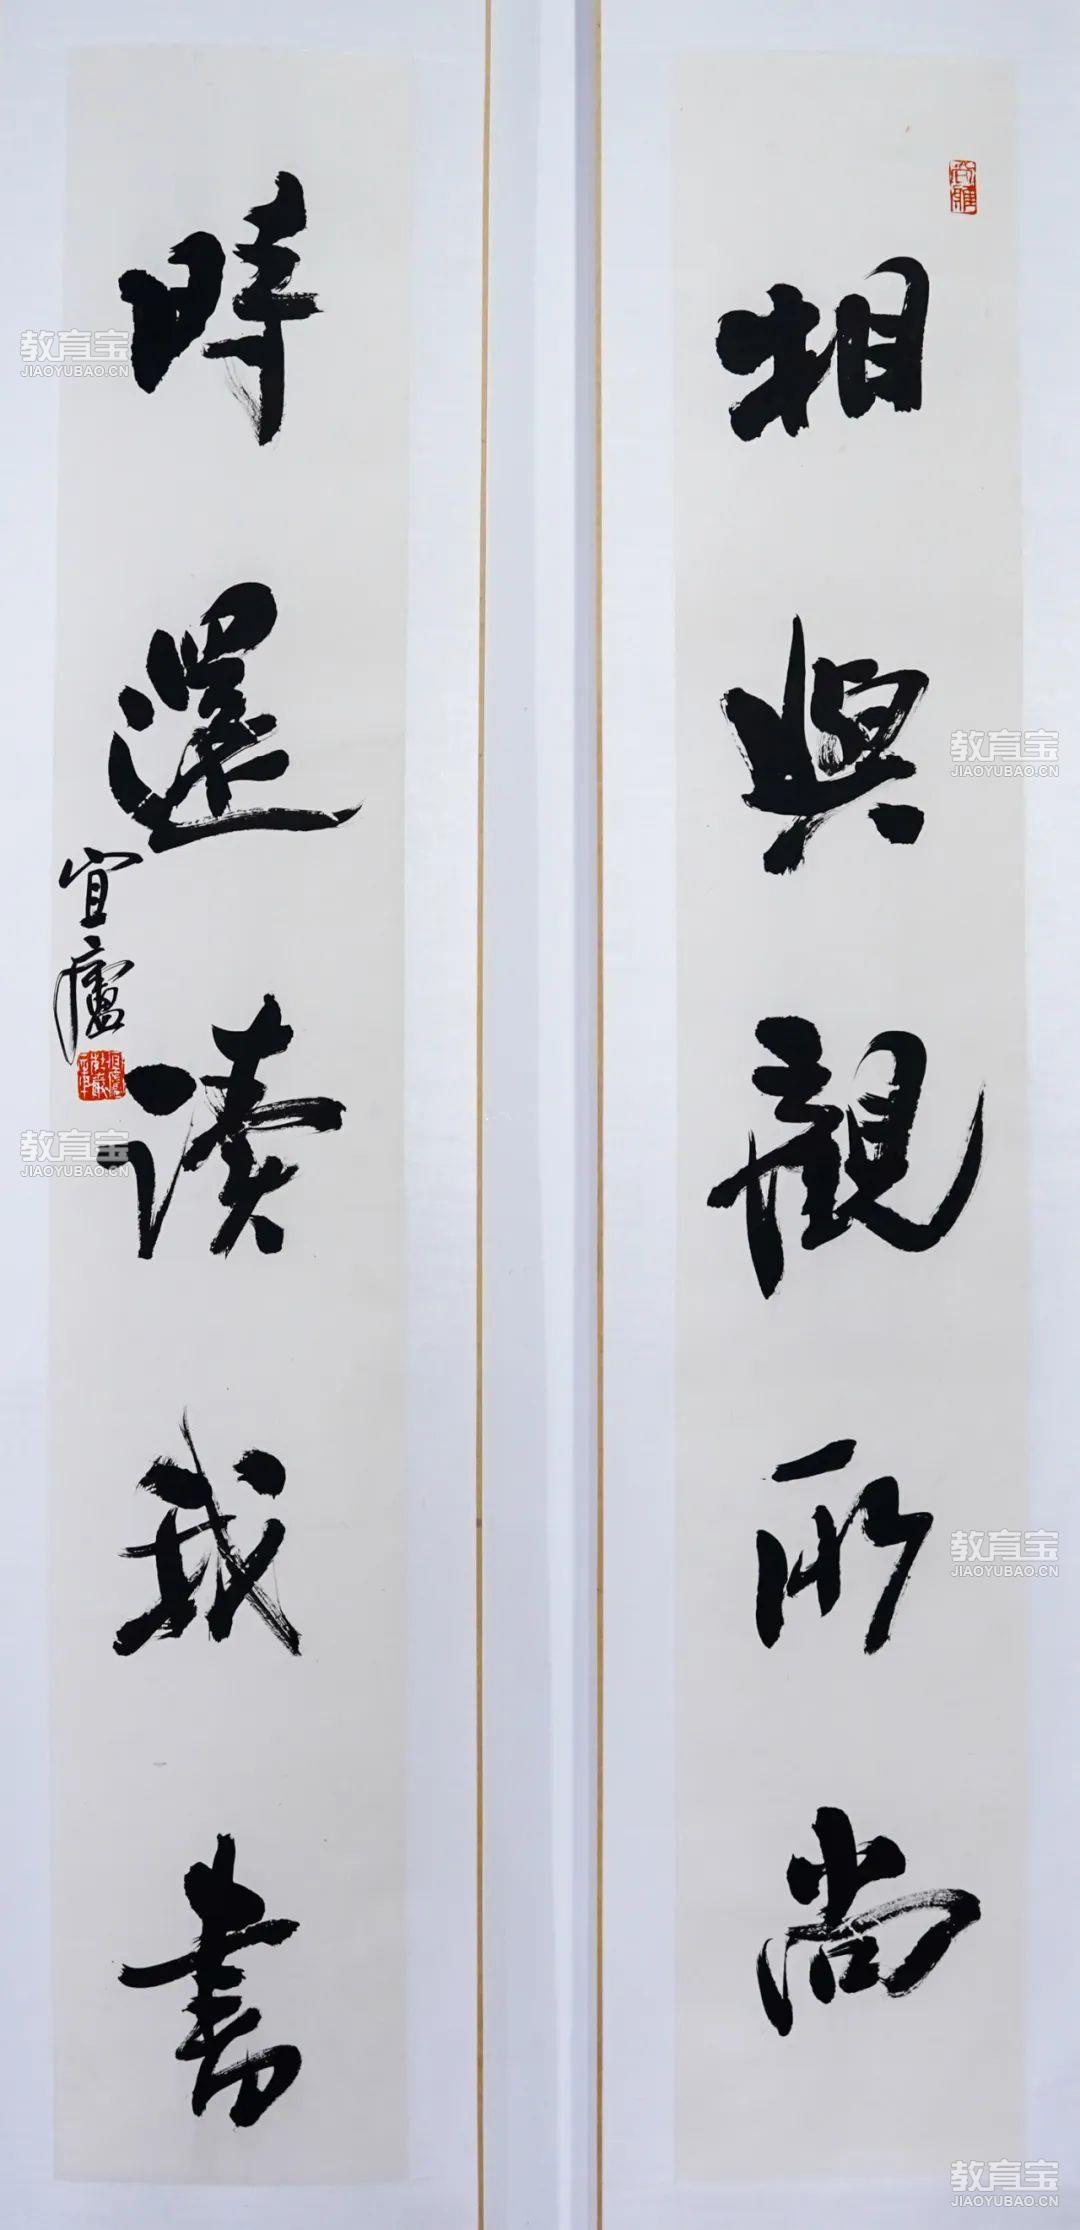 相與觀所尚
時還讀我書
宜廬
教育宝
JIAOYUBAO.CN
教育宝
JIAOYUBAO.CN
教育宝
JIAOYUBAO.CN
教育宝
JIAOYUBAO.CN
教育宝
JIAOYUBAO.CN